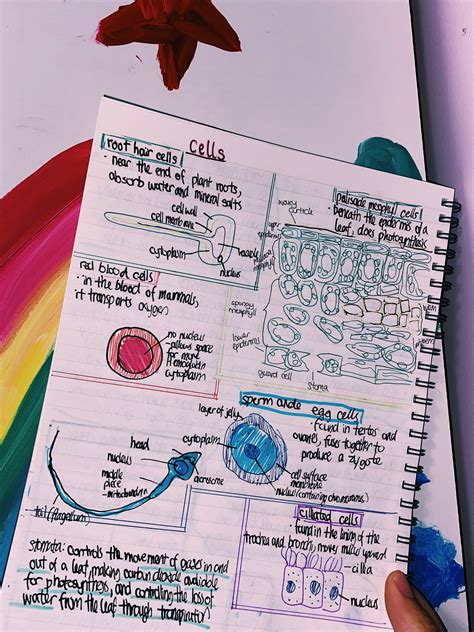 cells
root hair cells
• near the end of plant roots,
absorb water and mineral salts
cell wall
cell membrane
cytoplasm
vacuole
nucleus
palisade mesophyll cells
• beneath the epidermis of a
leaf, does photosynthesis
waxy
upper
epidermis
spongy
mesophyll
lower
epidermis
guard cell
stoma
red blood cells
• in the blood of mammals,
it transports oxygen
no nucleus
- allows space
for more
cytoplasm
sperm and egg cells
• found in testes and
ovaries, fuses together to
produce a zygote
layer of jelly
cytoplasm
cell surface
membrane
nucleus (containing chromosomes)
head
nucleus
middle
piece
- mitochondrion
acrosome
tail (flagellum)
ciliated cells
• found in the lining of the
trachea and bronchi, moves mucus upward
cilia
nucleus
stomata: controls the movement of gases in and
out of a leaf, making carbon dioxide available
for photosynthesis, and controlling the loss of
water from the leaf through transpiration